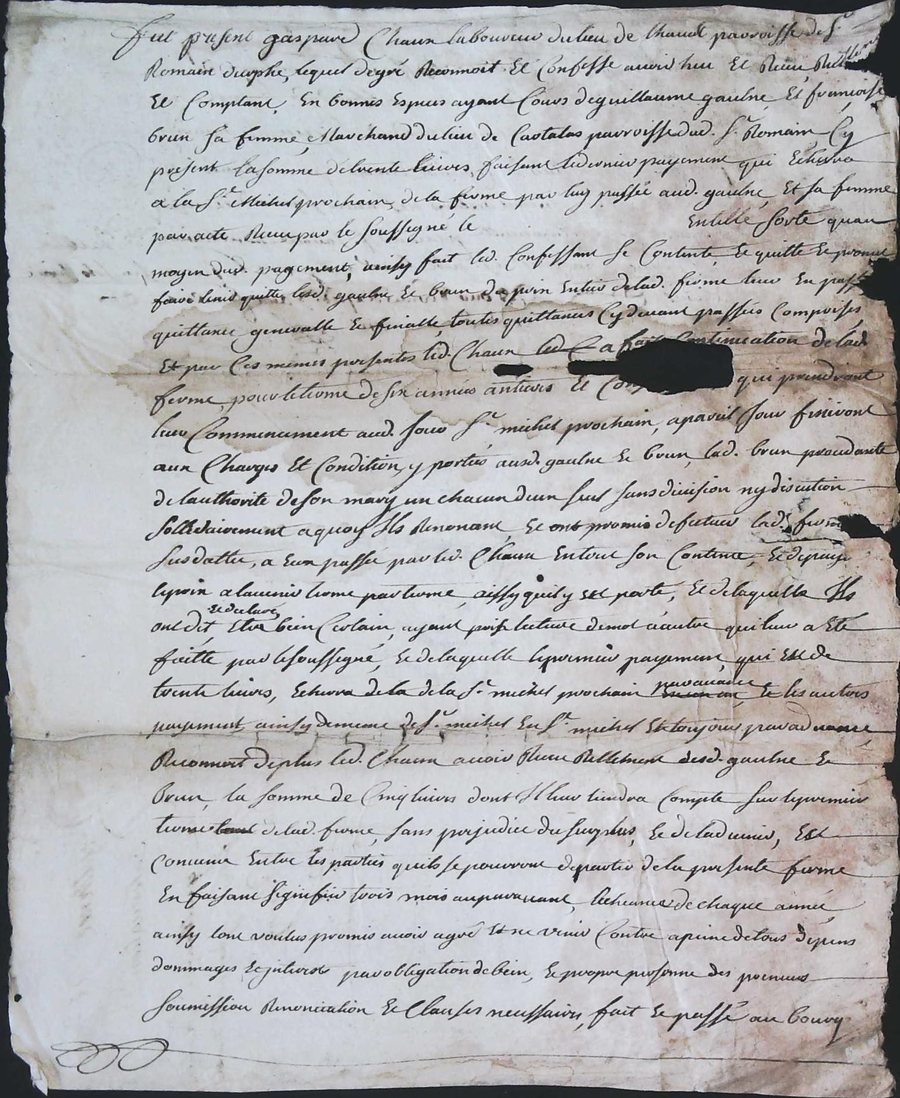 fut present gaspard Chaux laboureur du lieu de parroisse de St
Romain durphe, lequel de gré Reconnoit Et Confesse avoir heu Et Receu
Et Comptant, En bonnes Espesses ayant Cours de guillaume gaulne Et francoise
brun sa femme, Marchand du lieu de Castalas parroisse dud. St Romain, Cy
présent la somme de trente livres, faisant le dernier payement qui Echerra
a la St Michel prochain, de la ferme par luy passée aud. gaulne, Et sa femme
par acte Receu par le soussigné le En telle sorte quau
moyen dud. payement, ainsy fait led. Confessant se Contente Et quitte Et promet
faire tenir quitte lesd. gaulne Et brun du prix Entier de lad. ferme leur En
quittance generalle Et finalle, toutes quittances Cy devant passées Comprises
Et par Ces memes presentes led. Chaux led a fait Continuation de lad.
ferme, pour le terme de six années antieres Et qui prendront
leur Commencement aud. Jour St michel prochain, a pareil Jour finiront
aux Charges Et Condition, y portés ausd. gaulne Et brun, lad. brun procedante
de lauthorité de son mary un chacun deux seul sans division ny discution
sollidairement a quoy Ils Renoncent, Et ont promis deffectuer lad. ferme
susdatte, a Eux passée par led. Chaux En tout son Contenu, Et de payer
le prix a lavenir terme par terme, aissy quil y Est porté, Et de laquelle Ils
Et declaré
ont dit, Etre bien Certain, ayant prise lecture de mot a autre qui leur a Eté
faitte par le soussigné, Et de laquelle le premier payement, qui Est de
par avance
trente livres, Echerra de la de la St michel prochain Et les autres
payement, ainsy de meme de St michel En St michel Et toujour par advance
Reconnoit de plus led. Chaux avoir Receu Rellement desd. gaulne Et
Brun, la somme de Cinq livres dont Il leur tiendra Compte sur le premier
terme de lad. ferme, sans prejudice du surplus, Et de la Est
convenu Entre les parties quils se pourront departir de la presente ferme
En faisant signifier trois mois auparavant, lecheance de chaque année,
ainsy lont voulus promis avoir agré Et ne venir Contre a peine de tous depens
dommages Et par obligation de bien, Et propre personne des preneurs
soumission Renonciation Et Clauses necessaires, fait Et passé au bourg